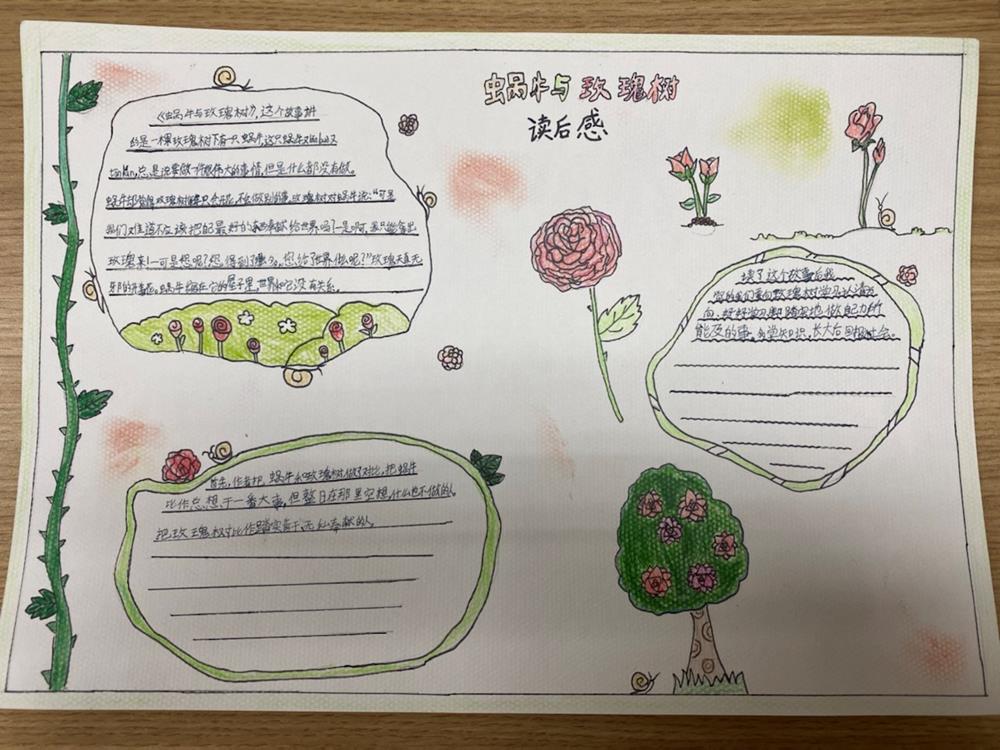 蜗牛与玫瑰树
读后感
《蜗牛与玫瑰树》，这个故事讲
的是一棵玫瑰树下有一只蜗牛，这只蜗牛
总是说要做一件很伟大的事情，但是什么都没有做。
蜗牛却觉得玫瑰树只会开花，不会做别的事，玫瑰树对蜗牛说：“可是
我们难道不应该把自己最好的东西奉献给世界吗？是啊，我只能拿出
玫瑰来！可是您呢？您得到了那么多，您给了世界什么呢？”玫瑰天真无
邪的开着花。蜗牛缩在它的屋子里，世界和它没有关系。
读了这个故事后我
觉的我们要向玫瑰树学习认清方
向、好好学习、脚踏实地做自己力所
能及的事，多学知识，长大后回报社会。
首先，作者把蜗牛和玫瑰树做了对比，把蜗牛
比作总想干一番大事，但整日在那里空想，什么也不做的人
把玫瑰树比作踏实肯干、无私奉献的人